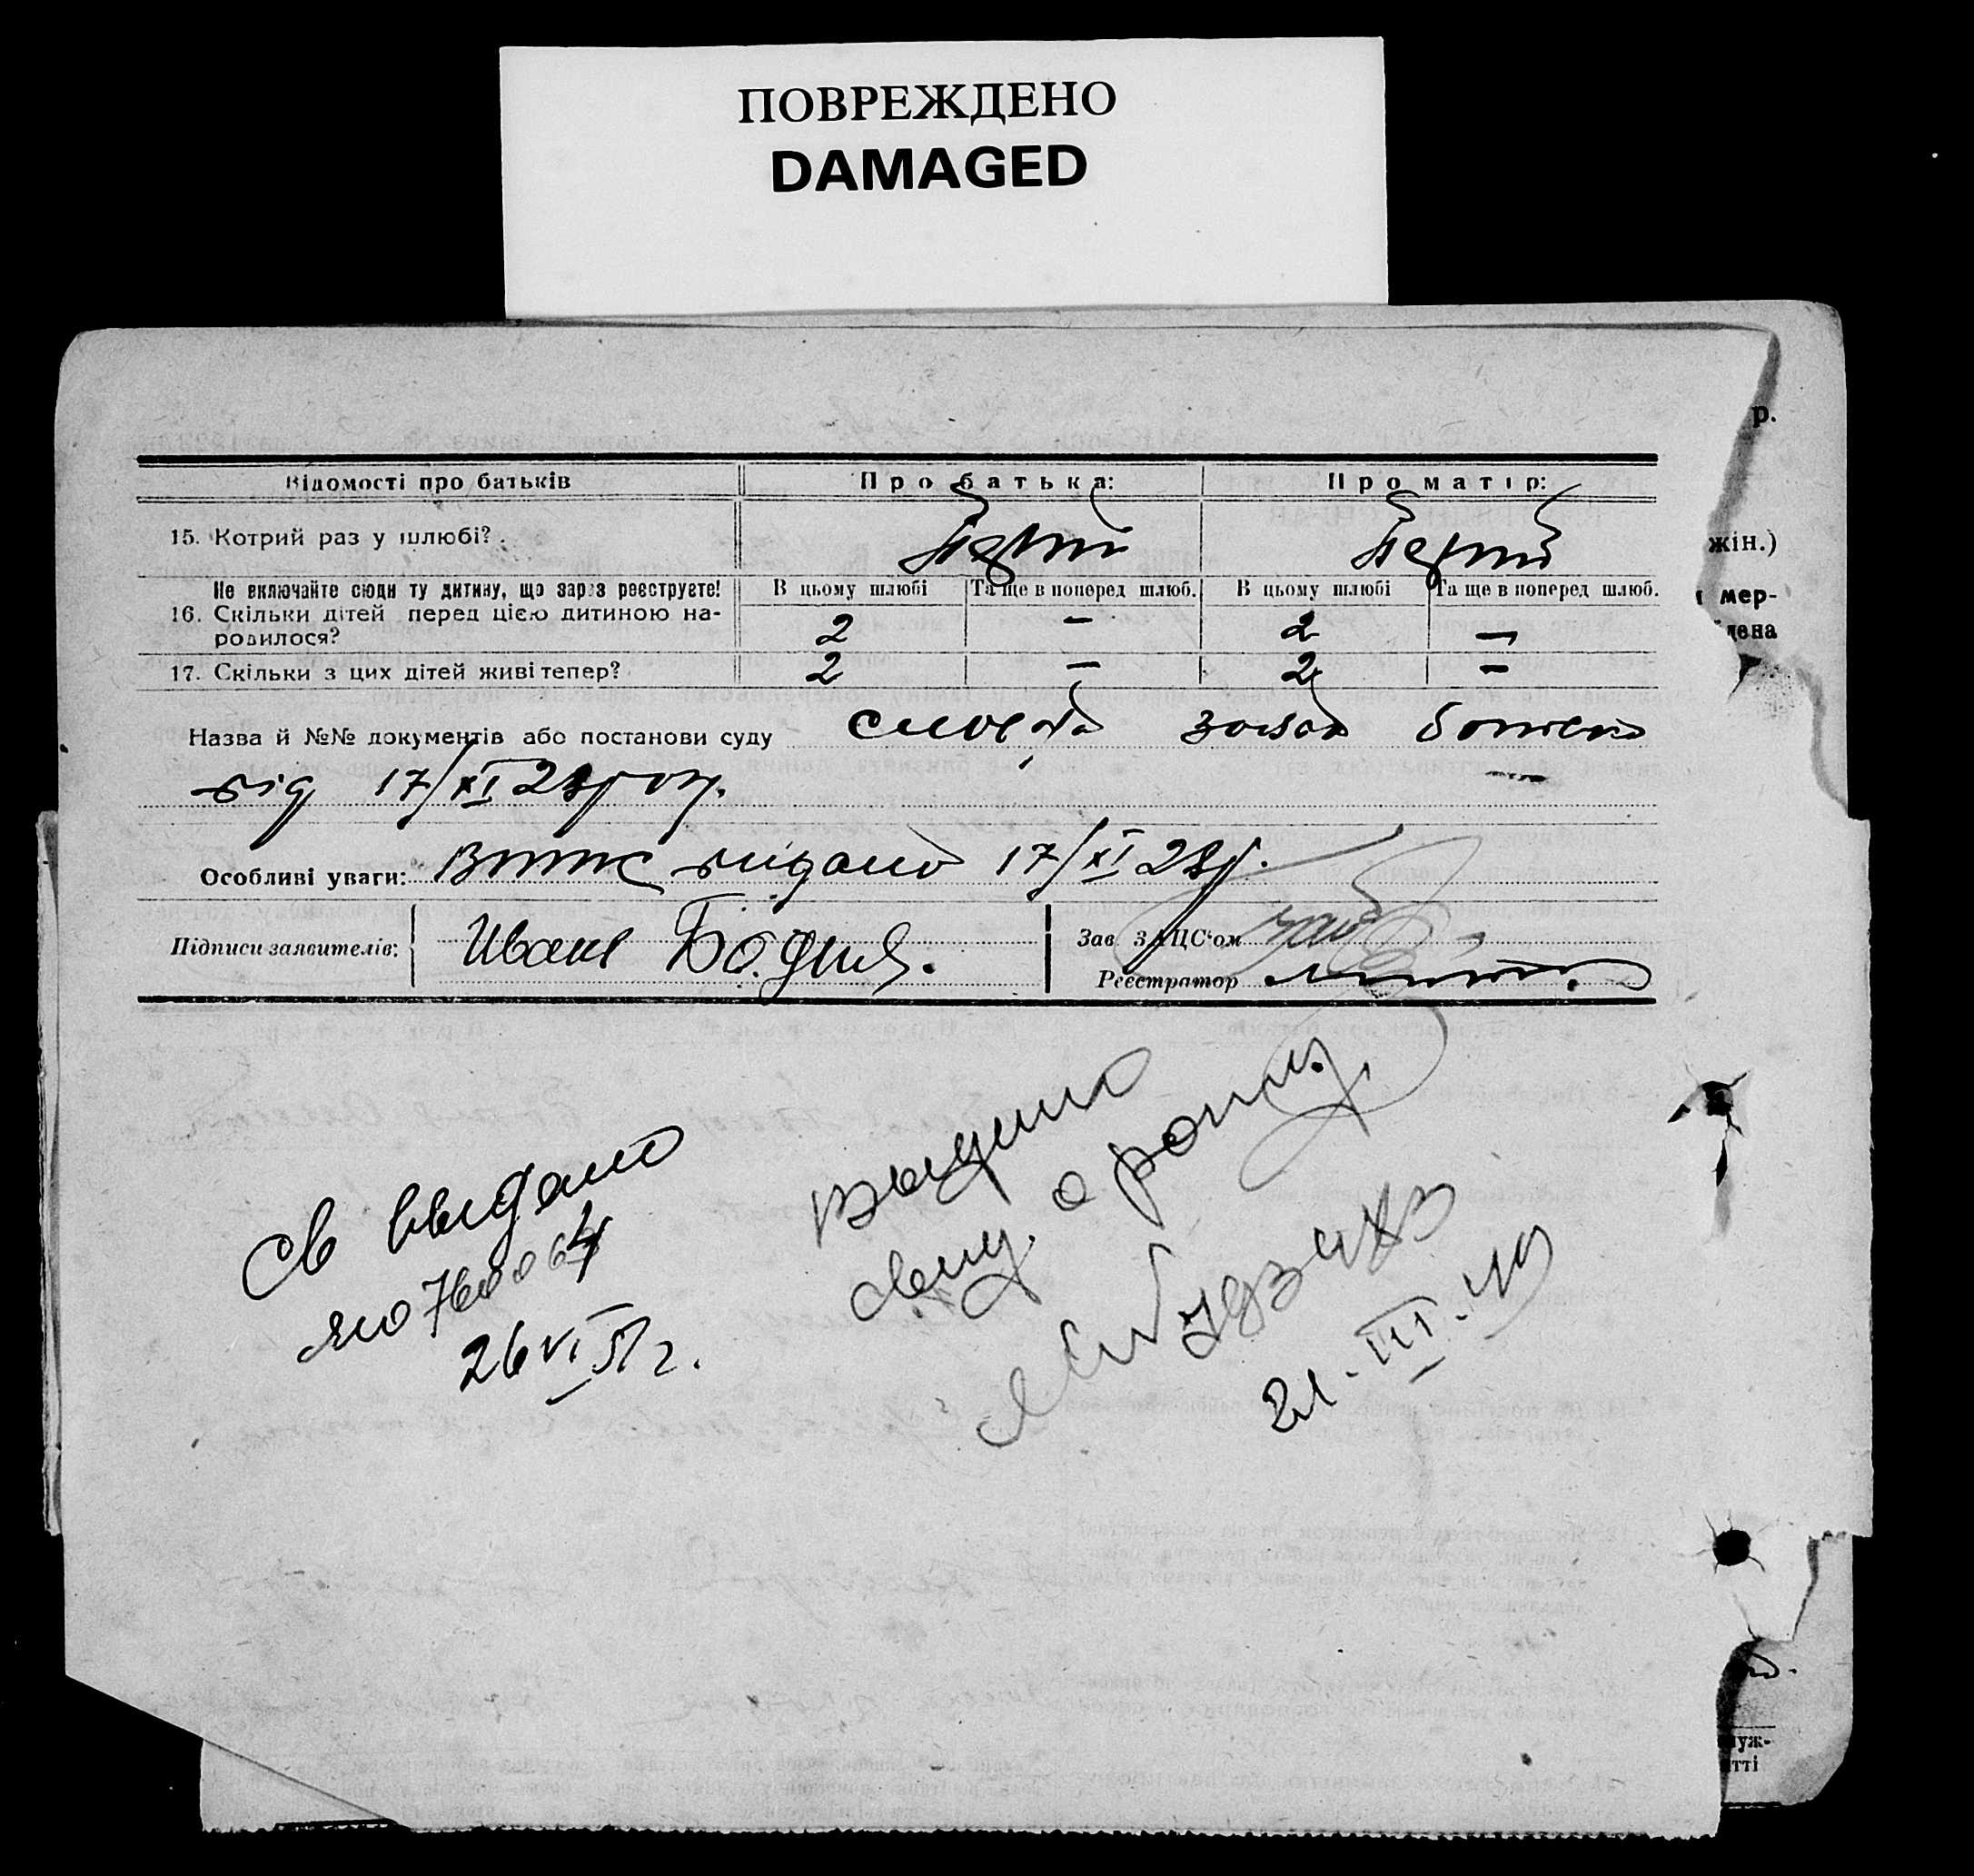 ПОВРЕЖДЕНО
DAMAGED
р.
Відомості про батьків Про батька: Про матір:
15. Котрий раз у шлюбі?
жін.)
Не включайте сюди ту дитину, що зараз реєструєте! В цьому шлюбі Та ще в поперед шлюб. В цьому шлюбі Та ще в поперед шлюб.
мер-
16. Скільки дітей перед цією дитиною на-
родилося? 2 — 2 —
дена
17. Скільки з цих дітей живі тепер? 2 — 2 —
Назва й №№ документів або постанови суду словесна заява батька
від 17/XI 28 рок.
Особливі уваги: видано 17/XI 28р.
Підписи заявителів: Иване
Зав ЗАЦС'ом
Реєстратор
Св выдано
ЯЮ 760064
26 VI 51 г.
Выдано
свид. о рожд.
21. III. 40
луж-
тті